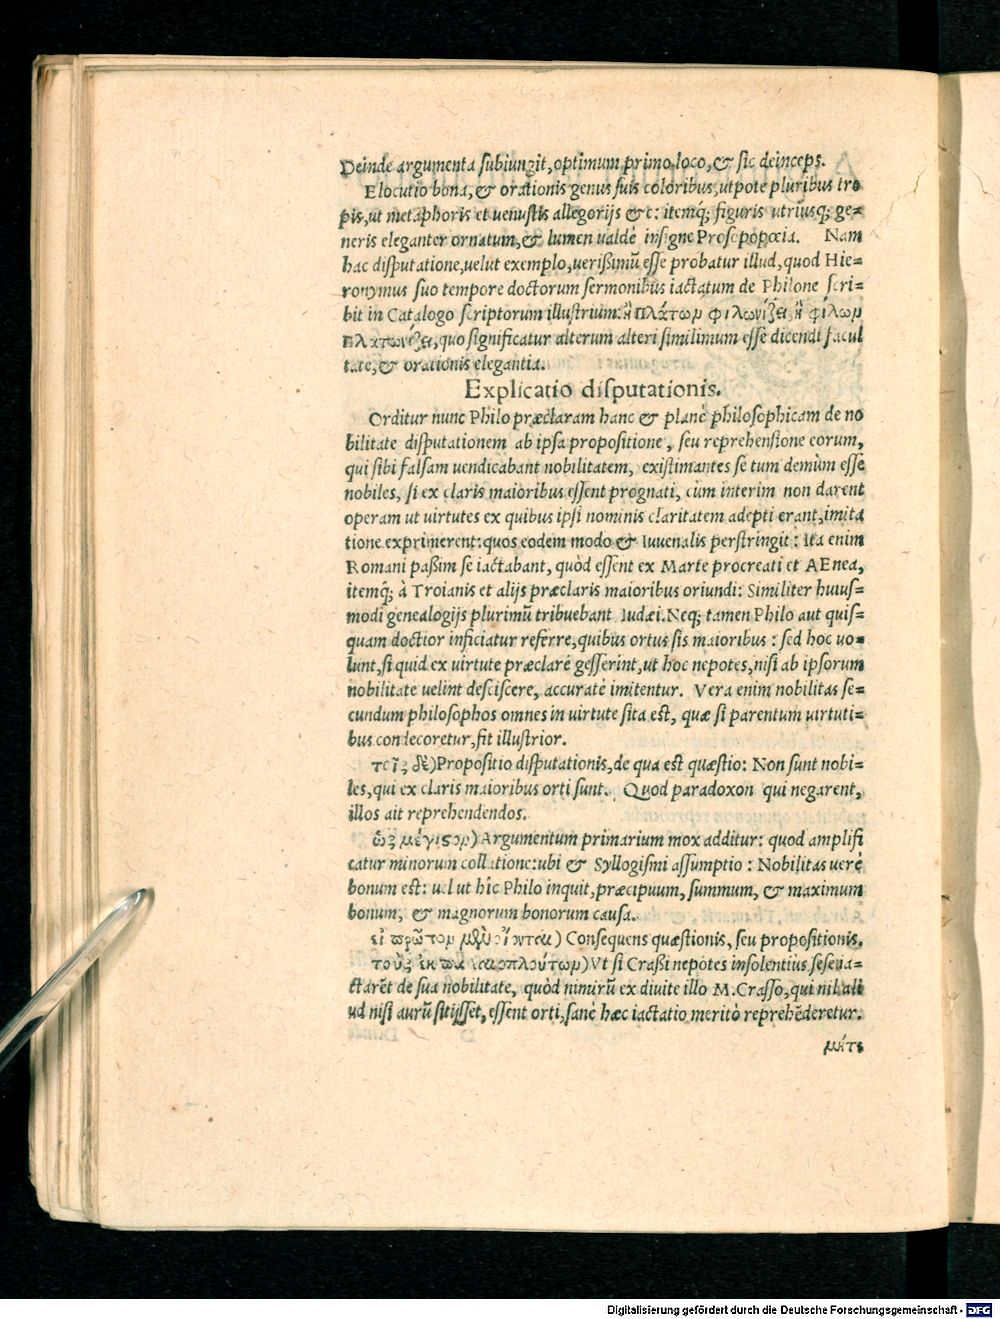 Deinde argumenta subiungit, optimum primo loco, & sic deinceps.
Elocutio bona, & orationis genus suis coloribus, utpote pluribus tro
pis, ut metaphoris et uenustis allegorijs &c: itemq; figuris utriusq; ge=
neris eleganter ornatum, & lumen ualdè insigne Prosopopœia. Nam
hac disputatione, uelut exemplo, uerißimũ esse probatur illud, quod Hie=
ronymus suo tempore doctorum sermonibus iactatum de Philone scri=
bit in Catalogo scriptorum illustrium: ἢ πλάτων φιλωνίζει, ἢ φίλων
πλατωνίζει, quo significatur alterum alteri simillimum esse dicendi facul
tate, & orationis elegantia.
Explicatio disputationis.
Orditur nunc Philo præclaram hanc & planè philosophicam de no
bilitate disputationem ab ipsa propositione, seu reprehensione eorum,
qui sibi falsam uendicabant nobilitatem, existimantes se tum demùm esse
nobiles, si ex claris maioribus essent prognati, cùm interim non darent
operam ut uirtutes ex quibus ipsi nominis claritatem adepti erant, imita
tione exprimerent: quos eodem modo & Iuuenalis perstringit: Ita enim
Romani paßim se iactabant, quòd essent ex Marte procreati et AEnea,
itemq; à Troianis et alijs præclaris maioribus oriundi: Similiter huius=
modi genealogijs plurimũ tribuebant Iudæi. Neq; tamen Philo aut quis=
quam doctior inficiatur referre, quibus ortus sis maioribus: sed hoc uo=
lunt, si quid ex uirtute præclarè gesserint, ut hoc nepotes, nisi ab ipsorum
nobilitate uelint desciscere, accuratè imitentur. Vera enim nobilitas se=
cundum philosophos omnes in uirtute sita est, quæ si parentum uirtuti=
bus condecoretur, fit illustrior.
τοῖς δὲ) Propositio disputationis, de qua est quæstio: Non sunt nobi=
les, qui ex claris maioribus orti sunt. Quod paradoxon qui negarent,
illos ait reprehendendos.
ὡς μέγιστον) Argumentum primarium mox additur: quod amplifi
catur minorum collatione: ubi & Syllogismi assumptio: Nobilitas uerè
bonum est: uel ut hîc Philo inquit, præcipuum, summum, & maximum
bonum, & magnorum bonorum causa.
εἰ πρῶτον μὲν οἴονται) Consequens quæstionis, seu propositionis.
τοὺς ἐκ παλαιοπλούτων) Vt si Craßi nepotes insolentius sese ia=
ctarẽt de sua nobilitate, quòd nimirũ ex diuite illo M. Crasso, qui nihil ali
ud nisi aurũ sitijsset, essent orti, sanè hæc iactatio meritò reprehẽderetur.
μήτε
Digitalisierung gefördert durch die Deutsche Forschungsgemeinschaft - DFG